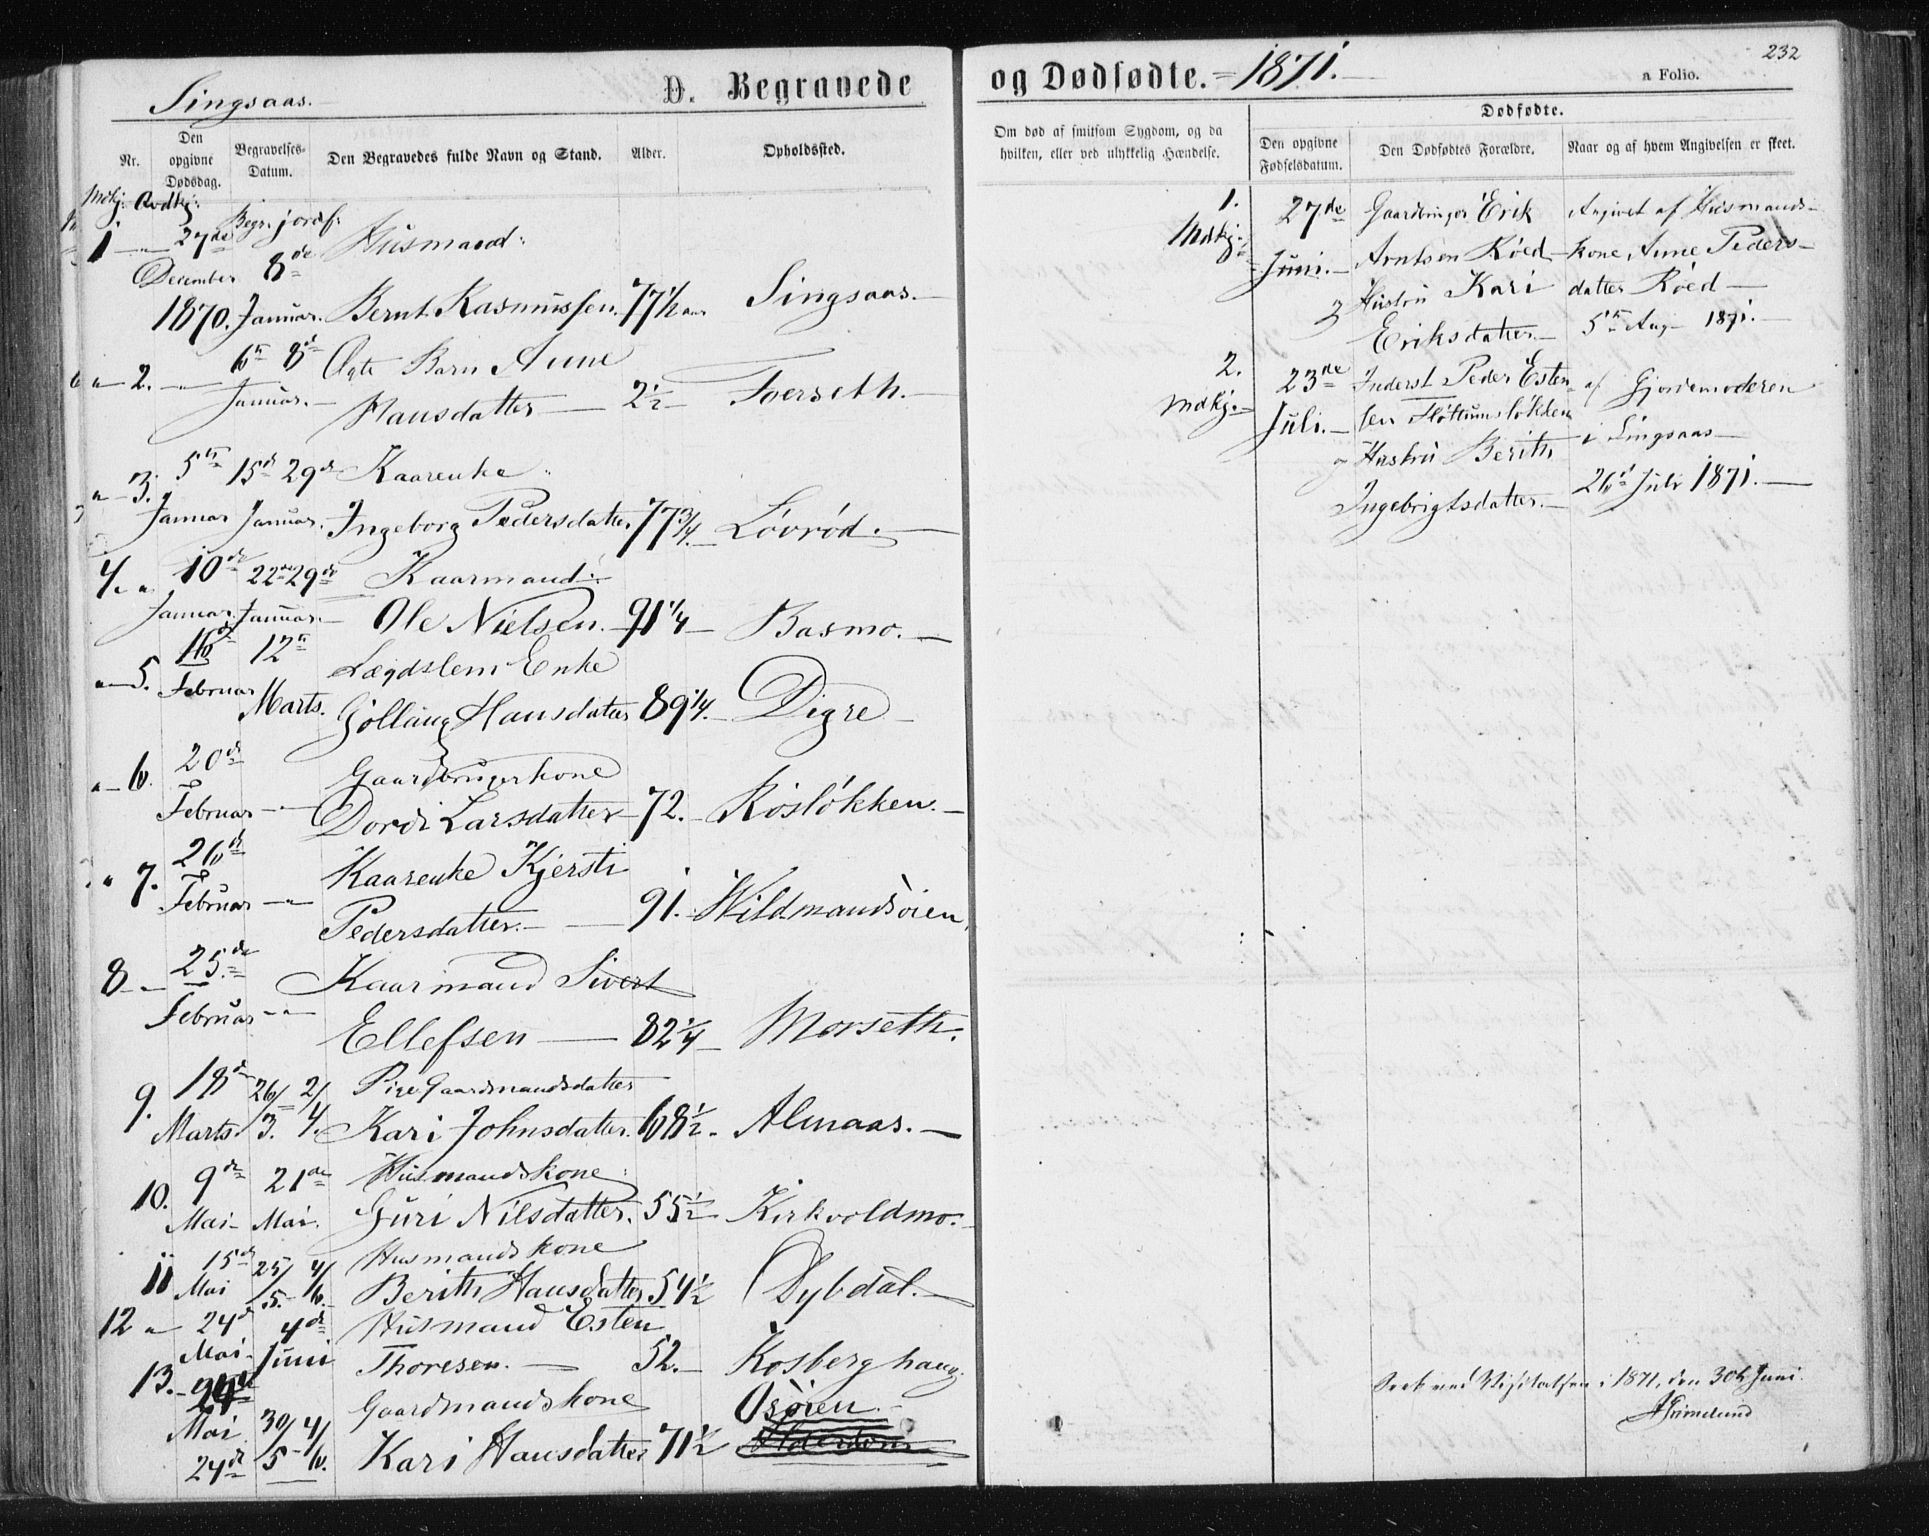 232
Singsaas.
D. Begravede og Dødfødte. 1871.
a Folio.
Nr.
Den opgivne Dødsdag.
Begravelses-Datum.
Den Begravedes fulde Navn og Stand.
Alder.
Opholdssted.
Om død af smitsom Sygdom, og da hvilken, eller ved ulykkelig Hændelse.
Dødfødte.
Den opgivne Fødselsdatum.
Den Dødfødtes Forældre.
Naar og af hvem Angivelsen er skeet.
Mdkj: Qvdkj:
Begr. jordf:
1 27de Husmand
December 8de
1870. Januar. Bernt Rasmussen 77 1/2 aar Singsaas.
2. 6te 8de Ægte Barn Anne
Januar. Hansdatter 2 1/2 Foerseth.
3. 5te 15de 29de Kaarenke
Januar Januar. Ingeborg Pedersdatter 77 3/4. Løvrød.
4. 10de 22de 29de Kaarmand
Januar Januar. Ole Nielsen. 91 1/4 Basmo.
5. 16de 12te Lægdslem Enke
Februar Marts. Gölluug Hansdatter 89 1/4. Digre
6. 20de Gaardbrugerkone
Februar Dordi Larsdatter 72. Rosløkken.
7. 26de Kaarenke Kjersti
Februar Pedersdatter. 91. Wildmandsøien
8 25de Kaarmand Sivert
Februar Ellefsen 82 1/4 Morseth.
9. 18de 26/3. 2/4. Pige Gaardmandsdatter
Marts. Kari Johnsdatter. 68 1/2. Almaas.
10. 9de 21de Husmandskone
Mai Mai. Guri Nilsdatter. 55 1/2 Kirkvoldmo.
11 15de 25/5. 4/6. Husmandskone
Mai Berith Hansdatter 54 1/2 Dybdal.
12 24de 4de Husmand Esten
Mai. Juni Thoresen. 52. Kosberghaug.
13. Gaardmandskone Osøien.
Mai 30/5 4/6. Kari Hansdatter 71 1/2
24de
1. 27de Gaardbruger Erik Angivet af Husmands-
Mdkj. Juni. Arntsen Røed kone Anne Peders-
og Hustru Kari datter Røed
Eriksdatter. 5te Aug 1871.
2. 23de Inderst Peder Esten- af Gjordemoderen
Mdkj. Juli. sen Fløttumsløkken i Singsaas
og Hustru Berith 26de Juli 1871.
Ingebrigtsdatter.
Seet ved Visitatsen i 1871, den 30te Juni.
Grimelund